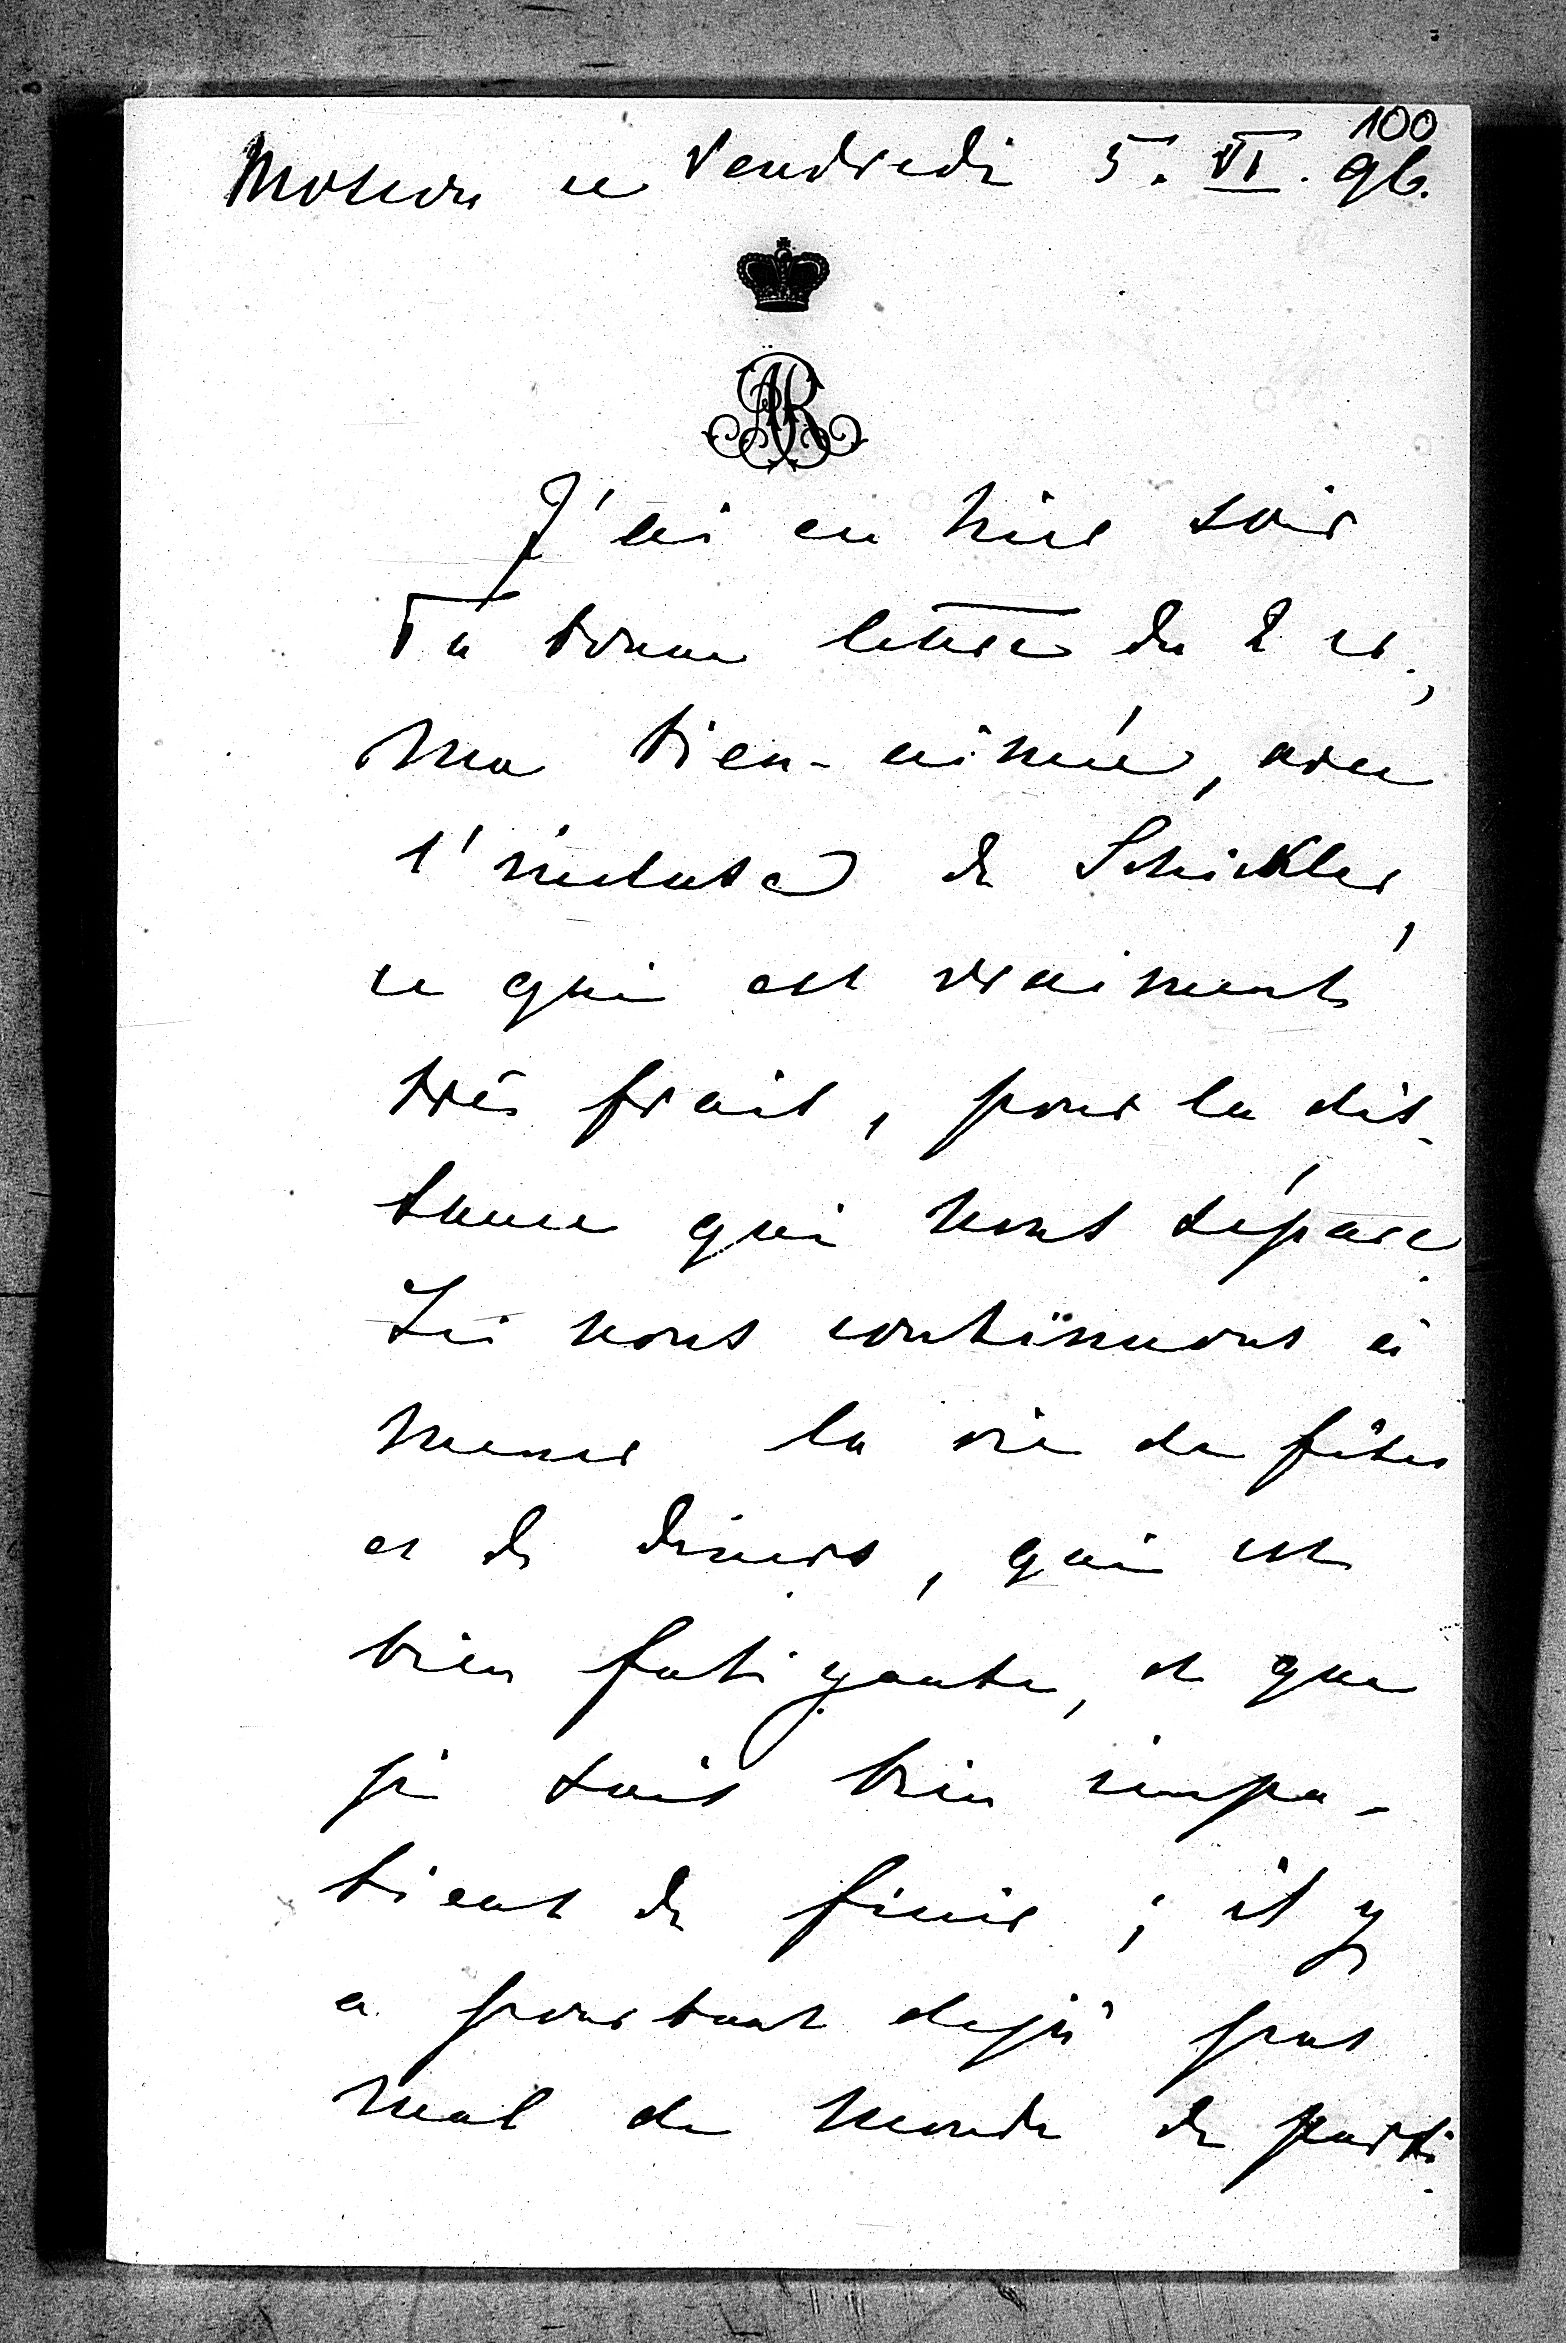 100
Moscou ce Vendredi 5. VI. 96.
AR
J'ai eu hier soir
Ta bonne lettre du 2 cr.,
ma bien-aimée, avec
l'incluse de Schickler,
ce qui est vraiment
très frais, pour la dis-
tance qui nous sépare.
Ici nous continuons à
mener la vie de fêtes
et de diners, qui est
bien fatigante, et que
je suis bien impa-
tient de finir ; il y
a pourtant dejà pas
mal de monde de parti.